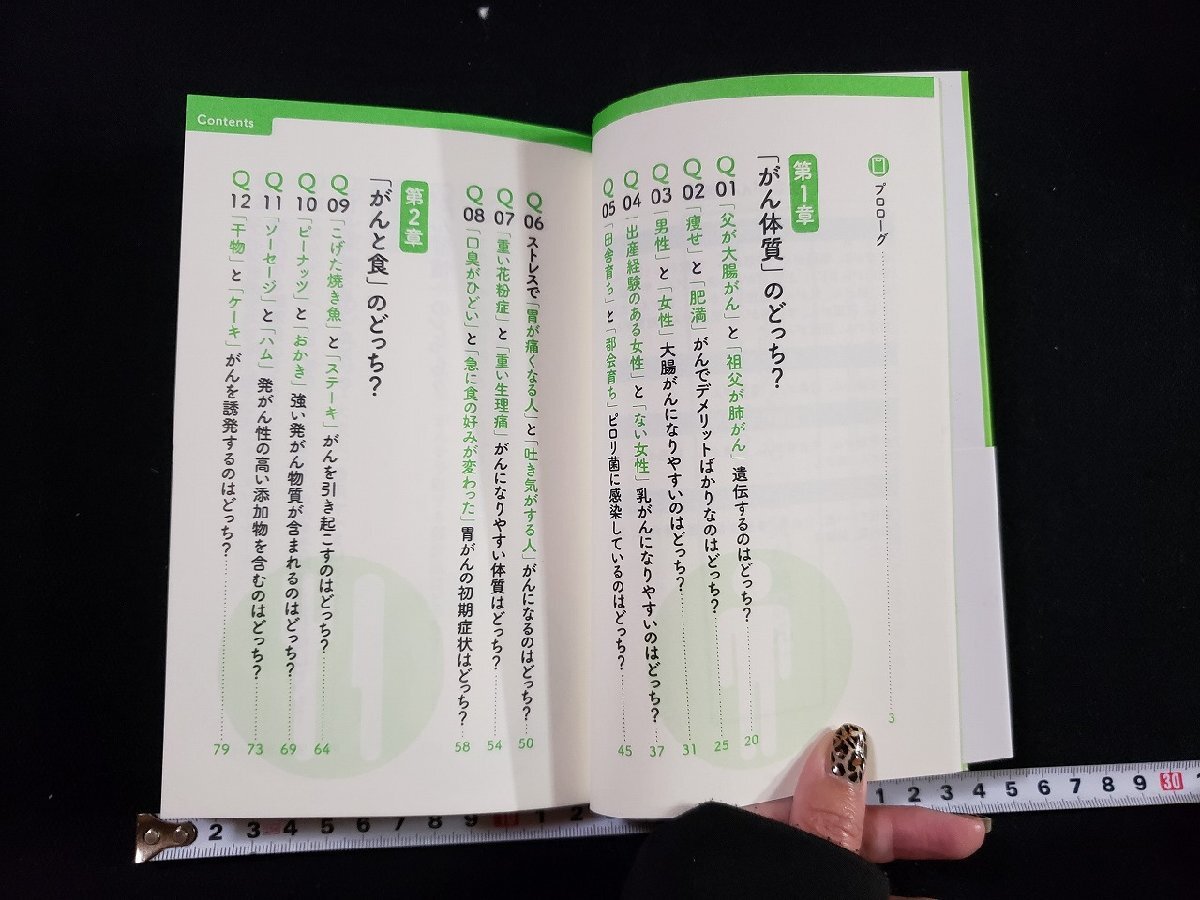 プロローグ 3
第1章
「がん体質」のどっち?
Q01 「父が大腸がん」と「祖父が肺がん」遺伝するのはどっち? 20
Q02 「痩せ」と「肥満」がんでデメリットばかりなのはどっち? 25
Q03 「男性」と「女性」大腸がんになりやすいのはどっち? 31
Q04 「出産経験のある女性」と「ない女性」乳がんになりやすいのはどっち? 37
Q05 「田舎育ち」と「都会育ち」ピロリ菌に感染しているのはどっち? 45
Contents
Q06 ストレスで「胃が痛くなる人」と「吐き気がする人」がんになるのはどっち? 50
Q07 「重い花粉症」と「重い生理痛」がんになりやすい体質はどっち? 54
Q08 「口臭がひどい」と「急に食の好みが変わった」胃がんの初期症状はどっち? 58
第2章
「がんと食」のどっち?
Q09 「こげた焼き魚」と「ステーキ」がんを引き起こすのはどっち? 64
Q10 「ピーナッツ」と「おかき」強い発がん物質が含まれるのはどっち? 69
Q11 「ソーセージ」と「ハム」発がん性の高い添加物を含むのはどっち? 73
Q12 「干物」と「ケーキ」がんを誘発するのはどっち? 79
2 3 4 5 6 7 8 9 10 1 2
1 2 3 4 5 6 7 8 9 30